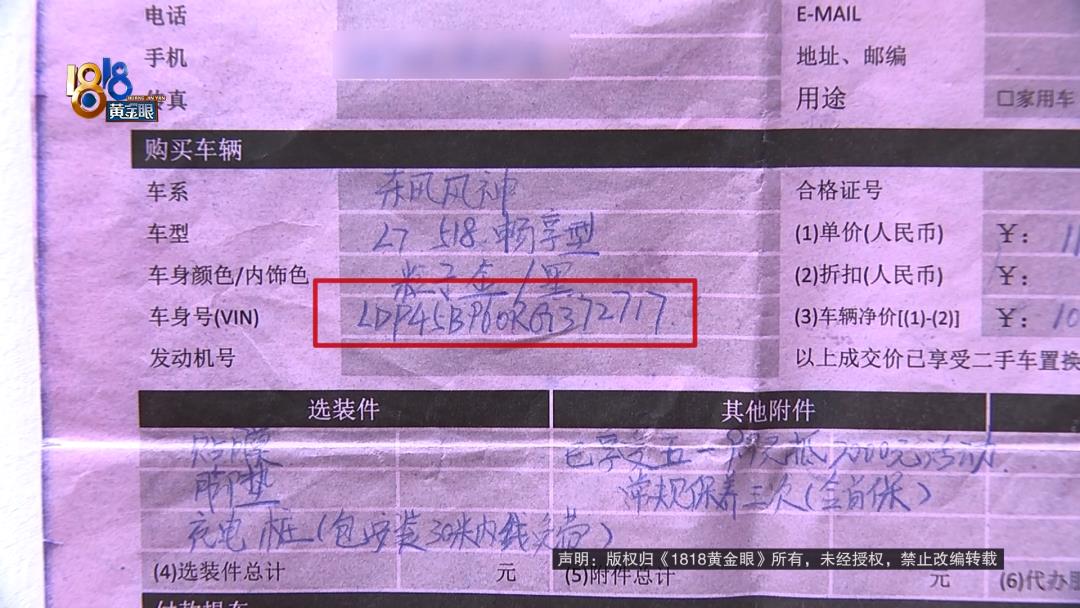 电话
E-MAIL
手机
地址、邮编
1818
HUANG JIN YAN
黄金眼
传真
用途
□家用车
购买车辆
车系 东风风神
合格证号
车型 L7 518 畅享型
(1)单价(人民币) ¥: 11
车身颜色/内饰色 粒子金/黑
(2)折扣(人民币) ¥:
车身号(VIN) LDP45BP60RG372717
(3)车辆净价[(1)-(2)] ¥: 10
发动机号
以上成交价已享受二手车置换
选装件
其他附件
贴膜
已享受五一99元抵7000元活动
脚垫
常规保养三次(含首保)
充电桩(包安装30米内线安装)
声明：版权归《1818黄金眼》所有，未经授权，禁止改编转载
(4)选装件总计 元
(5)附件总计 元
(6)代办服
付款提车